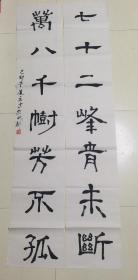 七十二峰青未斷
萬八千樹芳不孤